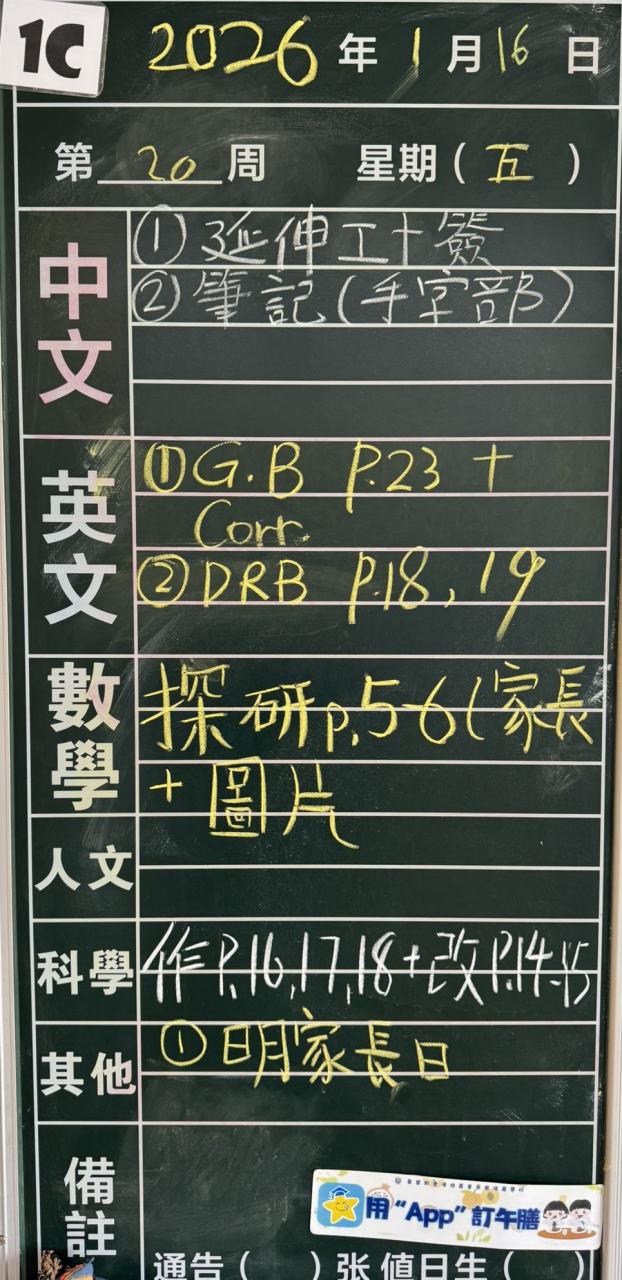 1C
2026 年 1 月 16 日
第 20 周 星期 ( 五 )
中文
① 延伸工十簽
② 筆記 (手字部)
英文
① G.B P.23 +
Corr.
② DRB P.18, 19
數學
探研 p.5-6 (家長
+ 圖片
人文
科學
作 P.16,17,18+改 P.14-15
其他
① 明家長日
備註
用 “App” 訂午膳
通告 ( ) 张 值日生 ( )